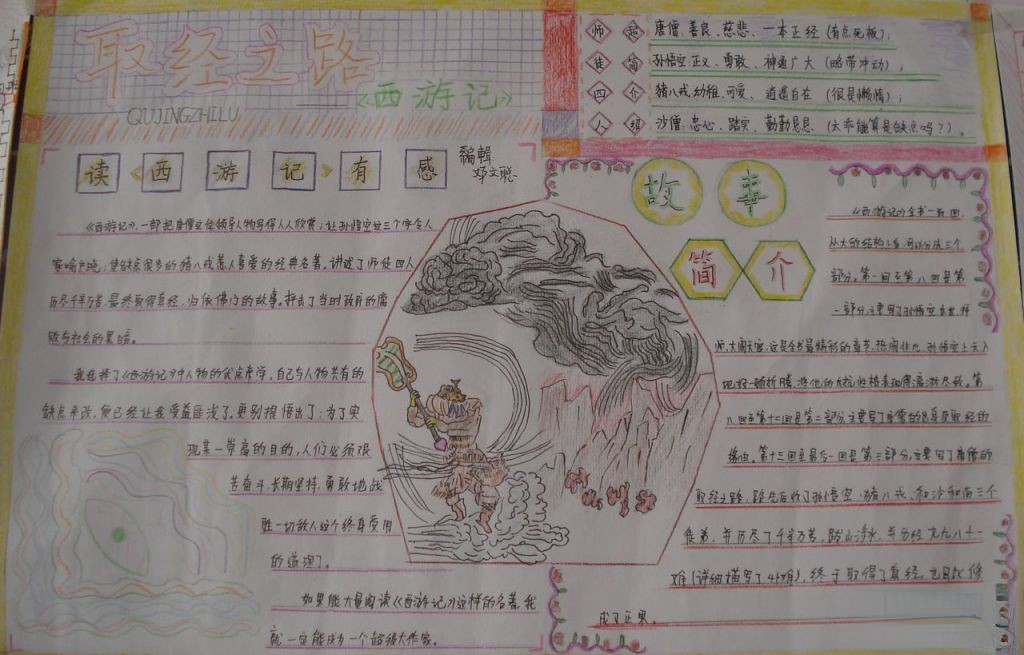 取经之路
《西游记》
QUJINGZHILU
师徒四人
超简介绍
唐僧:善良、慈悲、一本正经(有点死板);
孙悟空:正义、勇敢、神通广大(略带冲动);
猪八戒:幼稚、可爱、逍遥自在(很是懒惰);
沙僧:忠心、踏实、勤勤恳恳(太乖能算是缺点吗?)。
读《西游记》有感
编辑:
邓文聪
《西游记》,一部把唐僧这位领导人物写得人人欣赏;让孙悟空这三个字令人
家喻户晓;使缺点很多的猪八戒惹人喜爱的经典名著,讲述了师徒四人
历尽千辛万苦,最终取得真经,归依佛门的故事,抨击了当时政府的腐
败与社会的黑暗。
我选择了《西游记》中人物的优点来学,自己与人物共有的
缺点来改,便已经让我受益匪浅了,更别提悟出了:为了实
现某一崇高的目的,人们必须艰
苦奋斗,长期坚持,勇敢地战
胜一切敌人这个终身受用
的道理了。
如果能大量阅读《西游记》这样的名著,我
就一定能成为一个超级大作家。
故事
简介
《西游记》全书一百回,
从大的结构上看,可以分成三个
部分。第一回至第八回是第
一部分,主要写了孙悟空出世,拜
师,大闹天宫,这是全书最精彩的章节,热闹非凡,孙悟空上天入
地好一顿折腾,将他的反抗性格表现得淋漓尽致。第
八回至第十二回是第二部分,主要写了唐僧的出身及取经的
缘由。第十三回至最后一回是第三部分,主要写了唐僧的
取经之路,路上先后收了孙悟空、猪八戒、和沙和尚三个
徒弟,并历尽了千辛万苦,跋山涉水,并历经九九八十一
难(详细描写了41难),终于取得了真经,也因此修
成了正果。